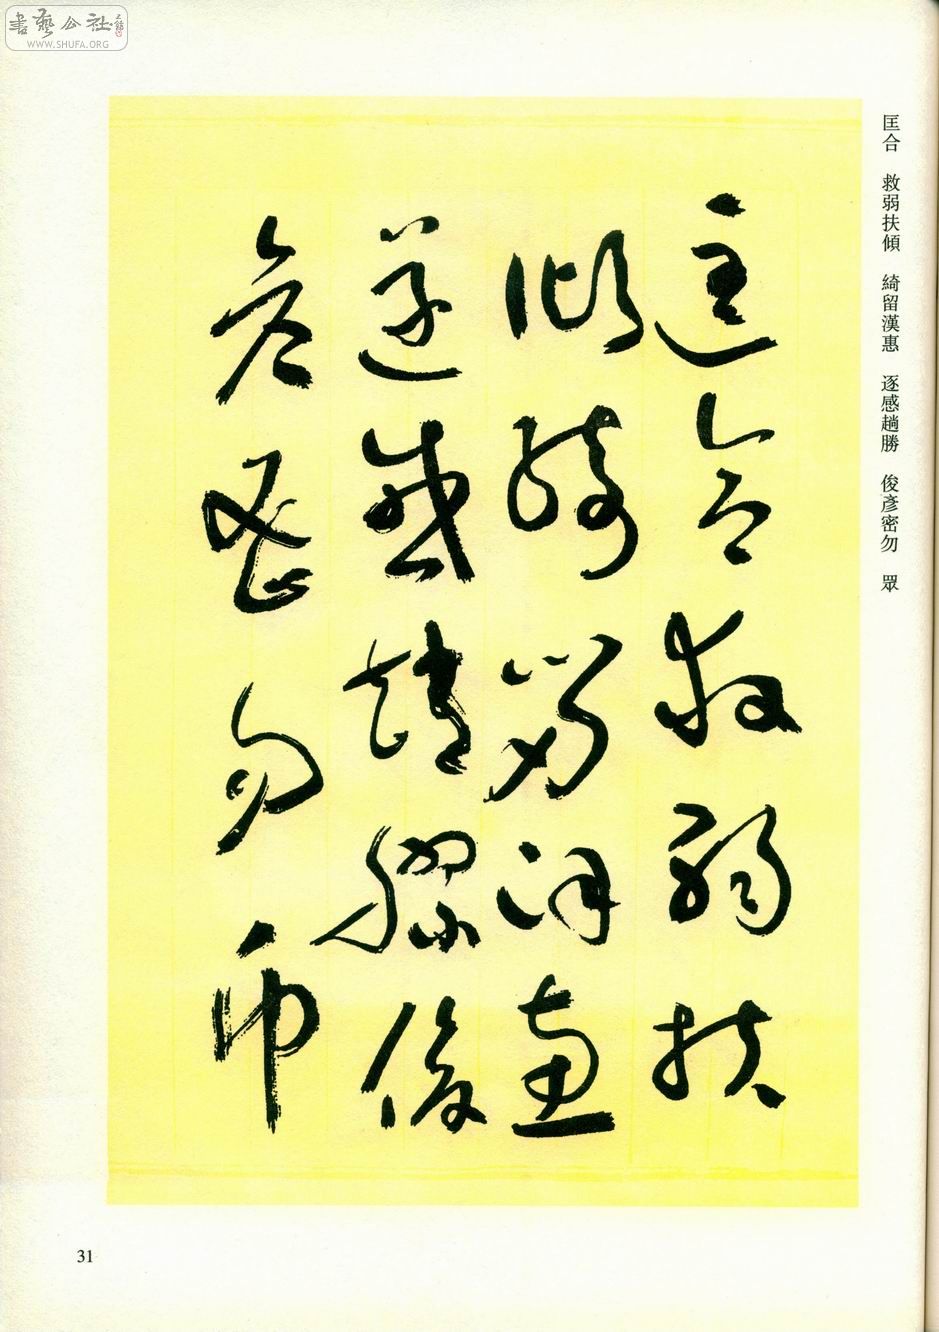 書藝公社
WWW.SHUFA.ORG
匡合　救弱扶傾　綺留漢惠　逐感趟勝　俊彥密勿　眾
匡合救弱扶
傾綺留漢惠
逐感勝俊
彥密勿
31